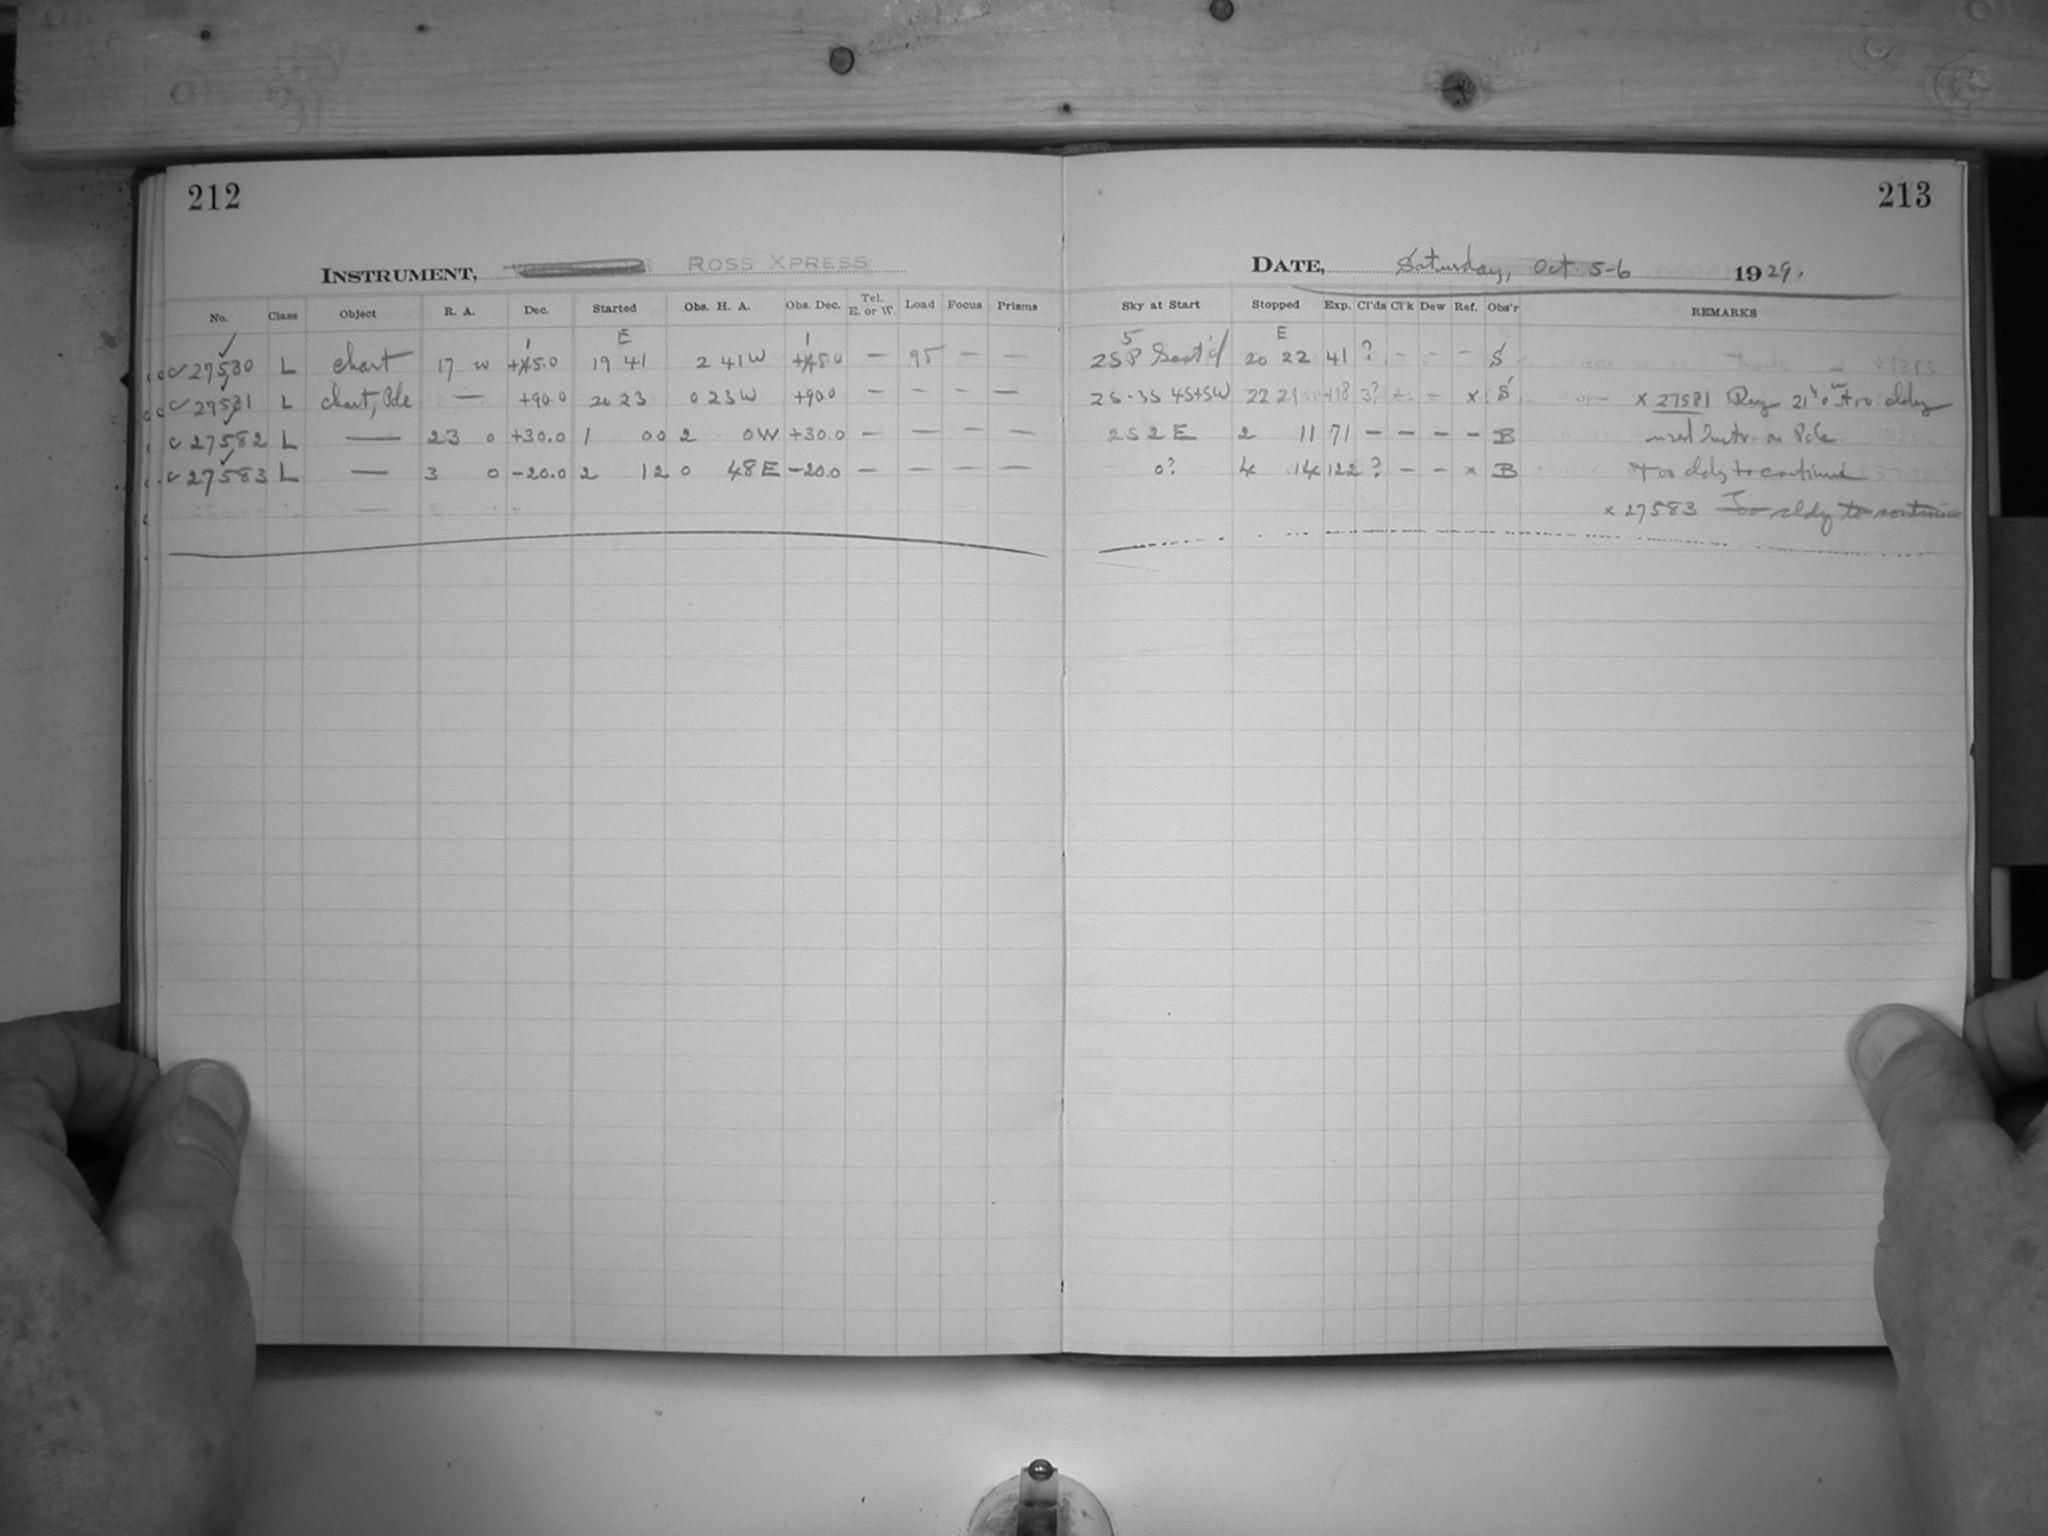 212
213
INSTRUMENT, ROSS XPRESS
DATE, Saturday, Oct. 5-6 1929.
No. Class Object R. A. Dec. Started Obs. H. A. Obs. Dec. Tel. E. or W. Load Focus Prisms Sky at Start Stopped Exp. Cl'ds Cl'k Dew Ref. Obs'r REMARKS
E 5 E
27580 L chart 17 +45.0 19 41 2 41 W +45.0 — 95 — — 2SP 20 22 41 ? - - - S
27581 L chart, Pole — +90.0 20 23 0 23 W +90.0 — — — — 2S-3S 4S+SW 22 21 118 3? - - x S x 27581 21 too cldy
27582 L — 23 0 +30.0 1 00 2 0W +30.0 — — — — 2S 2E 2 11 71 — — — — B used Instr. on Pole.
27583 L — 3 0 -20.0 2 12 0 48E -20.0 — — — — 0? 4 14 122 ? — — x B too cldy to continue
x 27583 Too cldy to continue